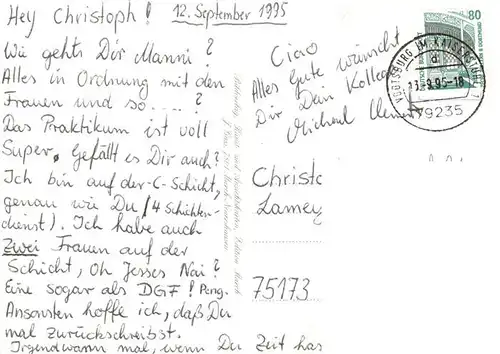 Hey Christoph!
12. September 1995
Wie gehts Dir Manni?
Alles in Ordnung mit den
Frauen und so.....?
Das Praktikum ist voll
Super. Gefällt es Dir auch?
Ich bin auf der C-Schicht,
genau wie Du (4 Schichten-
dienst). Ich habe auch
zwei Frauen auf der
Schicht, Oh Jesses Nai?
Eine sogar als DGF! Peng.
Ansonsten hoffe ich, daß Du
mal zurückschreibst.
Irgendwann mal, wenn Du Zeit has
Ciao
Alles Gute wünscht
Dir Dein
Michael
80
VOGTSBURG IM KAISERSTUHL 1
13.-9.95-18
79235
Christo
Lamey
75173